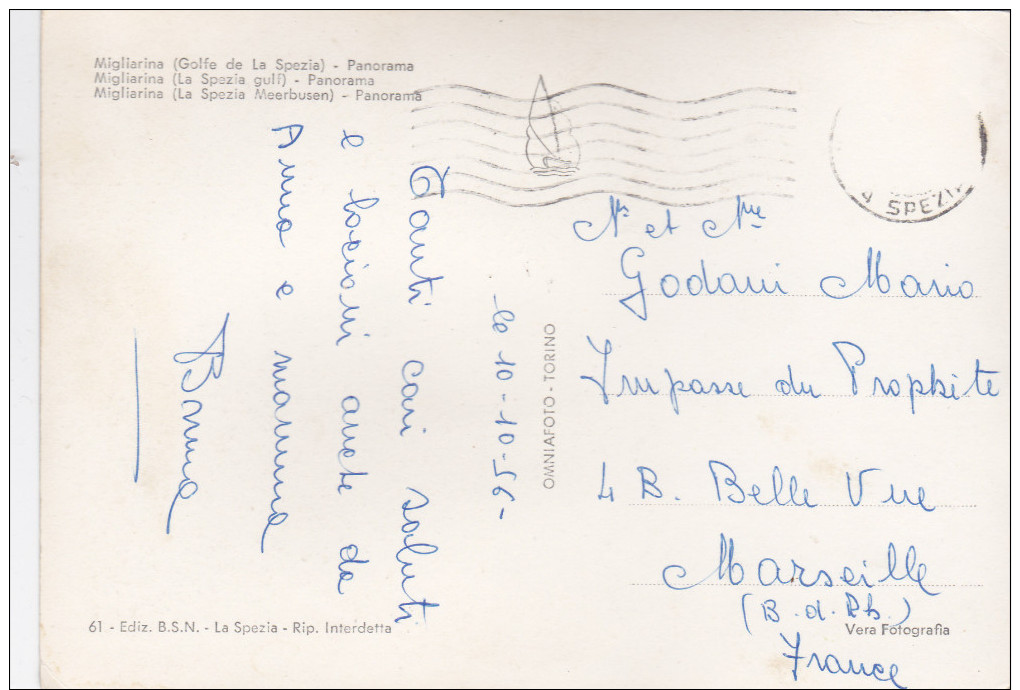 Migliarina (Golfe de La Spezia) - Panorama
Migliarina (La Spezia gulf) - Panorama
Migliarina (La Spezia Meerbusen) - Panorama
le 10-10-56-
Tanti cari saluti
e bacioni anche da
Anna e mamma
Bruna
OMNIAFOTO - TORINO
A SPEZIA
Mr et Mme
Godani Mario
Impasse du Prophite
4 B. Belle Vue
Marseille
(B.d.Rh.)
France
61 - Ediz. B.S.N. - La Spezia - Rip. Interdetta
Vera Fotografia